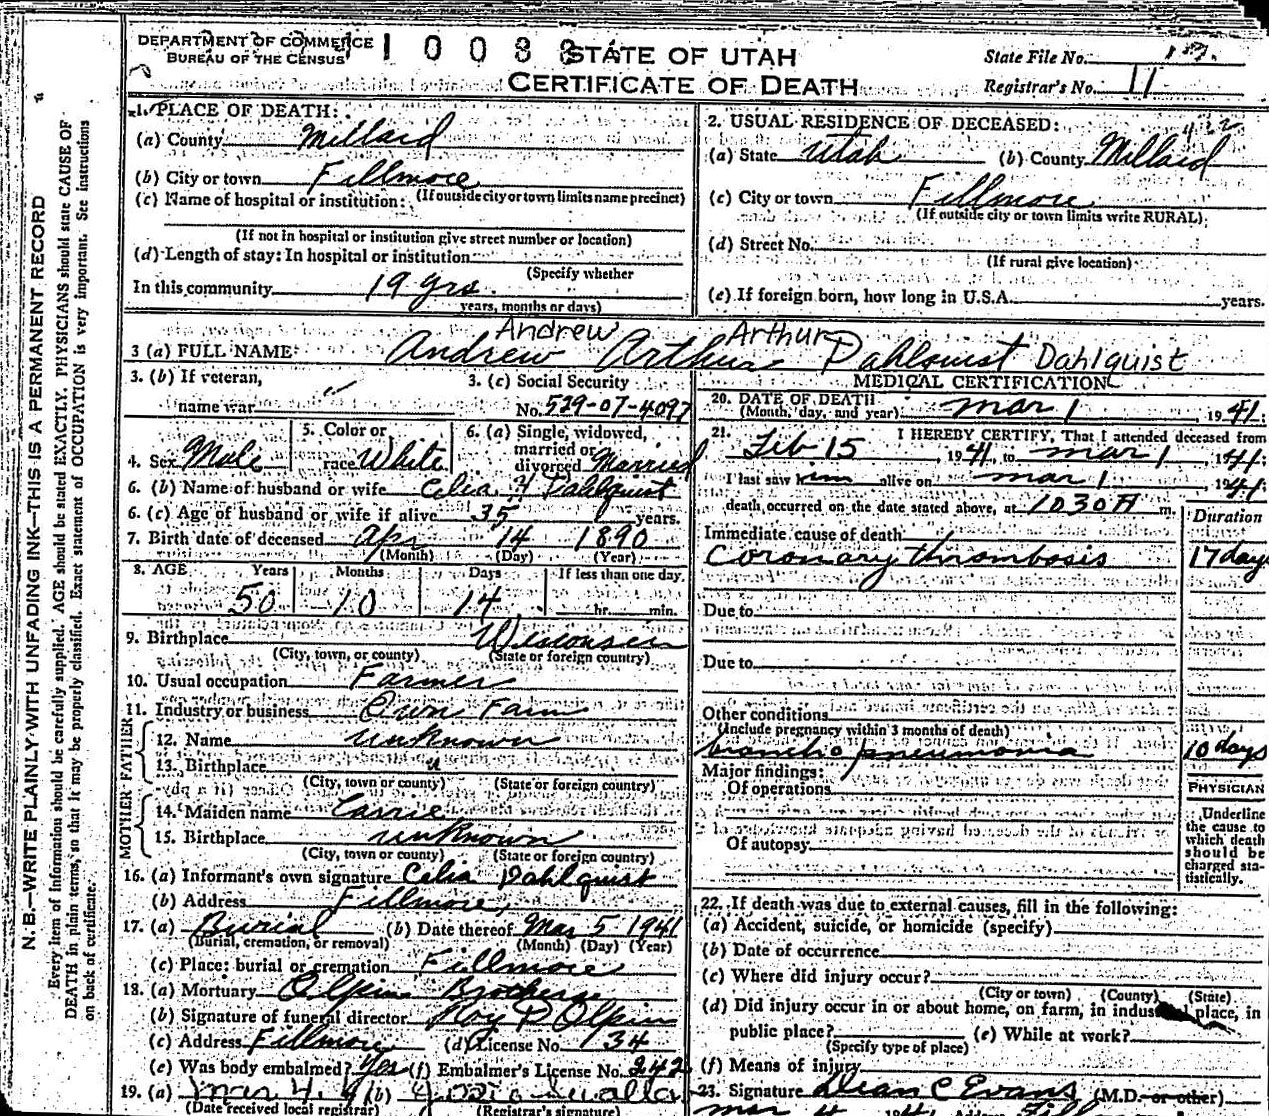 DEPARTMENT OF COMMERCE
BUREAU OF THE CENSUS
STATE OF UTAH
CERTIFICATE OF DEATH
State File No.
Registrar's No. 11
N. B.—WRITE PLAINLY WITH UNFADING INK—THIS IS A PERMANENT RECORD
Every item of information should be carefully supplied. AGE should be stated EXACTLY. PHYSICIANS should state CAUSE OF
DEATH in plain terms, so that it may be properly classified. Exact statement of OCCUPATION is very important. See instructions
on back of certificate.
1. PLACE OF DEATH:
(a) County Millard
(b) City or town Fillmore
(If outside city or town limits name precinct)
(c) Name of hospital or institution:
(If not in hospital or institution give street number or location)
(d) Length of stay: In hospital or institution
(Specify whether
In this community 19 yrs.
years, months or days)
2. USUAL RESIDENCE OF DECEASED:
(a) State Utah (b) County Millard
(c) City or town Fillmore
(If outside city or town limits write RURAL)
(d) Street No.
(If rural give location)
(e) If foreign born, how long in U.S.A. years.
Andrew Arthur
3 (a) FULL NAME Andrew Arthur Dahlquist Dahlquist
3. (b) If veteran,
name war
3. (c) Social Security
No. 529-07-4097
4. Sex Male
5. Color or
race White
6. (a) Single, widowed,
married or
divorced Married
6. (b) Name of husband or wife Celia Y Dahlquist
6. (c) Age of husband or wife if alive 35 years.
7. Birth date of deceased Apr 14 1890
(Month) (Day) (Year)
8. AGE Years Months Days If less than one day.
50 10 14 hr. min.
9. Birthplace Wisconsin
(City, town, or county) (State or foreign country)
10. Usual occupation Farmer
11. Industry or business Own Farm
FATHER
12. Name unknown
13. Birthplace u
(City, town or county) (State or foreign country)
MOTHER
14. Maiden name Carrie
15. Birthplace unknown
(City, town or county) (State or foreign country)
16. (a) Informant's own signature Celia Dahlquist
(b) Address Fillmore,
17. (a) Burial (b) Date thereof Mar 5 1941
(Burial, cremation, or removal) (Month) (Day) (Year)
(c) Place: burial or cremation Fillmore
18. (a) Mortuary Olpin Brothers
(b) Signature of funeral director Roy P Olpin
(c) Address Fillmore (d) License No. 34
(e) Was body embalmed? Yes (f) Embalmer's License No. 242
19. (a) Mar 4, (b)
(Date received local registrar) (Registrar's signature)
MEDICAL CERTIFICATION
20. DATE OF DEATH
(Month, day, and year) Mar 1, 1941
21. I HEREBY CERTIFY, That I attended deceased from
Feb 15, 1941, to Mar 1, 1941;
I last saw him alive on Mar 1, 1941;
death occurred on the date stated above, at 1030 A m.
Duration
Immediate cause of death
Coronary thrombosis 17 days
Due to
Due to
Other conditions
(Include pregnancy within 3 months of death)
broncho pneumonia 10 days
Major findings:
Of operations
Of autopsy
PHYSICIAN
Underline
the cause to
which death
should be
charged sta-
tistically.
22. If death was due to external causes, fill in the following:
(a) Accident, suicide, or homicide (specify)
(b) Date of occurrence
(c) Where did injury occur?
(City or town) (County) (State)
(d) Did injury occur in or about home, on farm, in industrial place, in
public place? (e) While at work?
(Specify type of place)
(f) Means of injury
23. Signature Dean C Evans (M.D. or other)